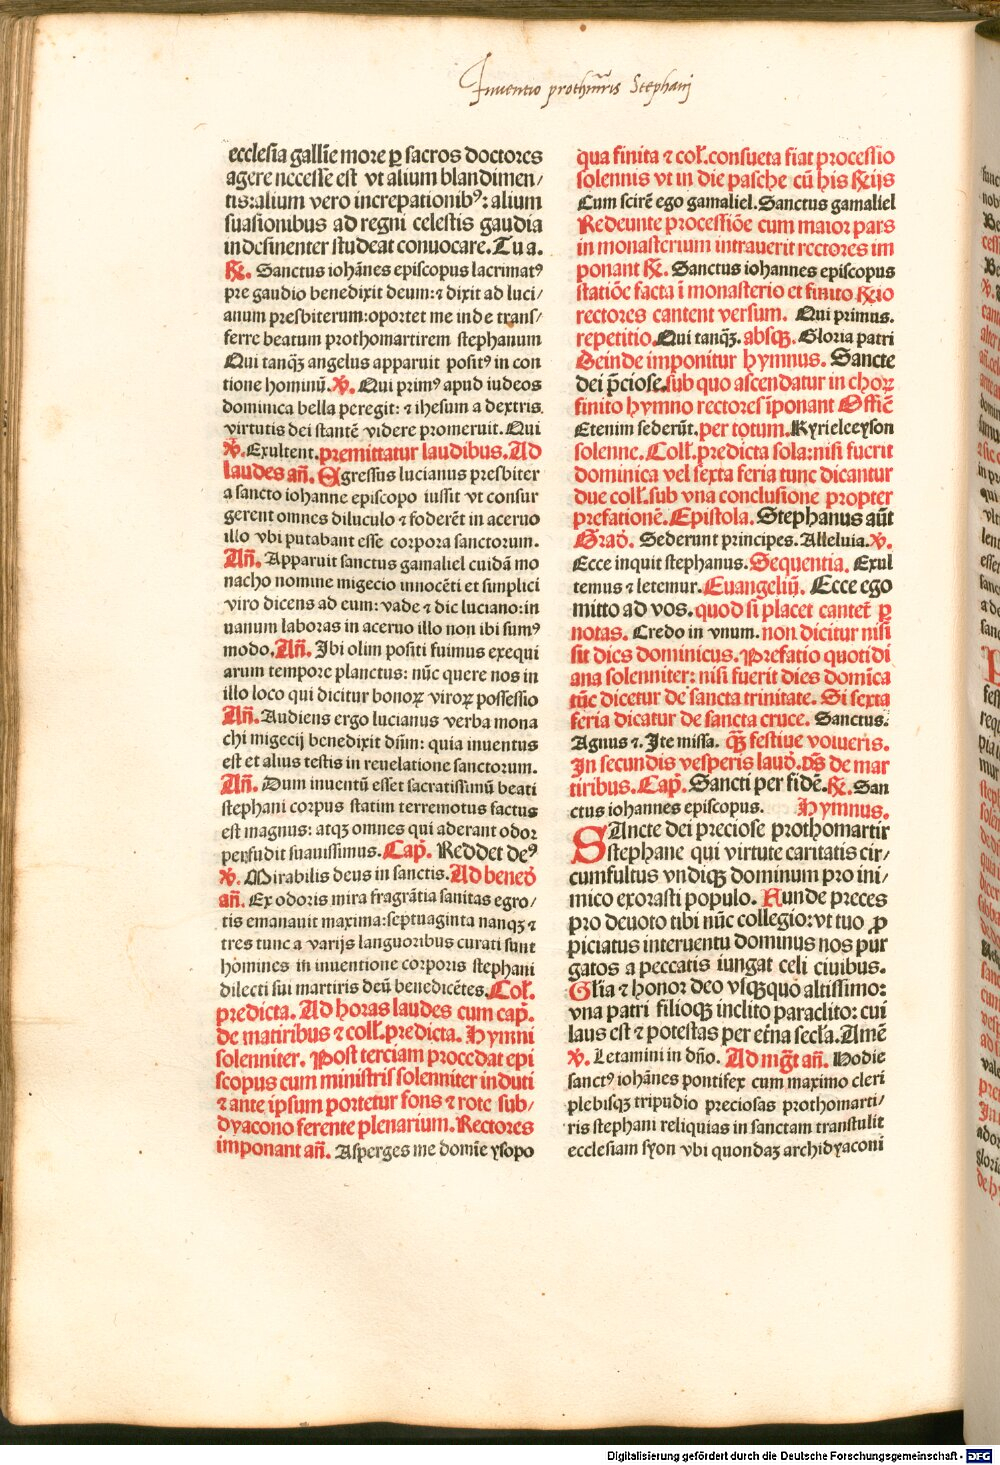 Inventio prothmr̃is Stephani
ecclesia gallie more ꝑ sacros doctores
agere necesse est vt alium blandimen/
tis: alium vero increpationibꝰ: alium
suasionibus ad regni celestis gaudia
indesinenter studeat conuocare. Tu a.
℟. Sanctus iohãnes episcopus lacrimatꝰ
pre gaudio benedixit deum: ⁊ dixit ad luci/
anum presbiterum: oportet me inde trans/
ferre beatum prothomartirem stephanum
Qui tanqꝫ angelus apparuit positꝰ in con
tione hominũ. ℣. Qui primꝰ apud iudeos
dominica bella peregit: ⁊ ihesum a dextris
virtutis dei stantẽ videre promeruit. Qui
℣. Exultent. premittatur laudibus. Ad
laudes añ. Egressus lucianus presbiter
a sancto iohanne episcopo iussit vt consur
gerent omnes diluculo ⁊ foderẽt in aceruo
illo vbi putabant esse corpora sanctorum.
Añ. Apparuit sanctus gamaliel cuidã mo
nacho nomine migecio innocẽti et simplici
viro dicens ad eum: vade ⁊ dic luciano: in
uanum laboras in aceruo illo non ibi sumꝰ
modo. Añ. Ibi olim positi fuimus exequi
arum tempore planctus: nũc quere nos in
illo loco qui dicitur bonoꝝ viroꝝ possessio
Añ. Audiens ergo lucianus verba mona
chi migecij benedixit dñm: quia inuentus
est et alius testis in reuelatione sanctorum.
Añ. Dum inuentũ esset sacratissimũ beati
stephani corpus statim terremotus factus
est magnus: atqꝫ omnes qui aderant odor
perfudit suauissimus. Cap̃. Reddet deꝰ
℣. Mirabilis deus in sanctis. Ad bened̃
añ. Ex odoris mira fragrãtia sanitas egro/
tis emanauit maxima: septuaginta nanqꝫ ⁊
tres tunc a varijs languoribus curati sunt
homines in inuentione corporis stephani
dilecti sui martiris deũ benedicẽtes. Col̃.
predicta. Ad horas laudes cum cap̃.
de matiribus ⁊ coll̃. predicta. Hymni
solenniter. Post terciam procedat epi
scopus cum ministris solenniter induti
⁊ ante ipsum portetur fons ⁊ rote sub/
dyacono ferente plenarium. Rectores
imponant añ. Asperges me domĩe ysopo
qua finita ⁊ col̃. consueta fiat processio
solennis vt in die pasche cũ his ℟ijs
Cum scirẽ ego gamaliel. Sanctus gamaliel
Redeunte processiõe cum maior pars
in monasterium intrauerit rectores im
ponant ℟. Sanctus iohannes episcopus
statiõe facta ĩ monasterio et finito ℟io
rectores cantent versum. Qui primus.
repetitio. Qui tanqꝫ. absqꝫ. Gloria patri
Deinde imponitur hymnus. Sancte
dei p̃ciose. sub quo ascendatur in choꝝ
finito hymno rectores ĩponant Offiẽ
Etenim sederũt. per totum. Kyrieleeyson
solenne. Coll̃. predicta sola: nisi fuerit
dominica vel sexta feria tunc dicantur
due coll̃. sub vna conclusione propter
prefationẽ. Epistola. Stephanus aũt
Grad̃. Sederunt principes. Alleluia. ℣.
Ecce inquit stephanus. Sequentia. Exul
temus ⁊ letemur. Euangeliũ. Ecce ego
mitto ad vos. quod si placet cantet̃ ꝑ
notas. Credo in vnum. non dicitur nisi
sit dies dominicus. Prefatio quotidi
ana solenniter: nisi fuerit dies domĩca
tũc dicetur de sancta trinitate. Si sexta
feria dicatur de sancta cruce. Sanctus.
Agnus ⁊. Ite missa. qꝫ̃ festiue volueris.
In secundis vesperis laud̃. p̃s de mar
tiribus. Cap̃. Sancti per fidẽ. ℟. San
ctus iohannes episcopus. Hymnus.
SAncte dei preciose prothomartir
stephane qui virtute caritatis cir/
cumfultus vndiqꝫ dominum pro ini/
mico exorasti populo. Aunde preces
pro deuoto tibi nũc collegio: vt tuo ꝓ
piciatus interuentu dominus nos pur
gatos a peccatis iungat celi ciuibus.
Glĩa ⁊ honor deo vsqꝫquo altissimo:
vna patri filioqꝫ inclito paraclito: cui
laus est ⁊ potestas per etna secl̃a. Amẽ
℣. Letamini in dño. Ad mgt̃ añ. Hodie
sanctꝰ iohãnes pontifex cum maximo cleri
plebisqꝫ tripudio preciosas prothomarti/
ris stephani reliquias in sanctam transtulit
ecclesiam syon vbi quondaꝫ archidyaconi